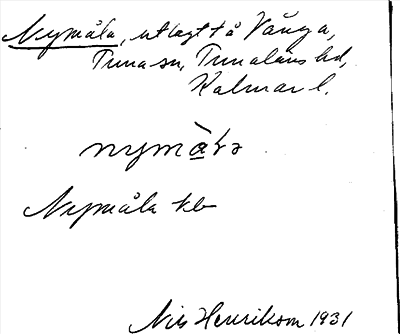 Nymåla, utlagt på Vånga,
Tuna sn, Tunaläns hd,
Kalmar l.
nymåla
Nymåla
Nils Henrikson 1931